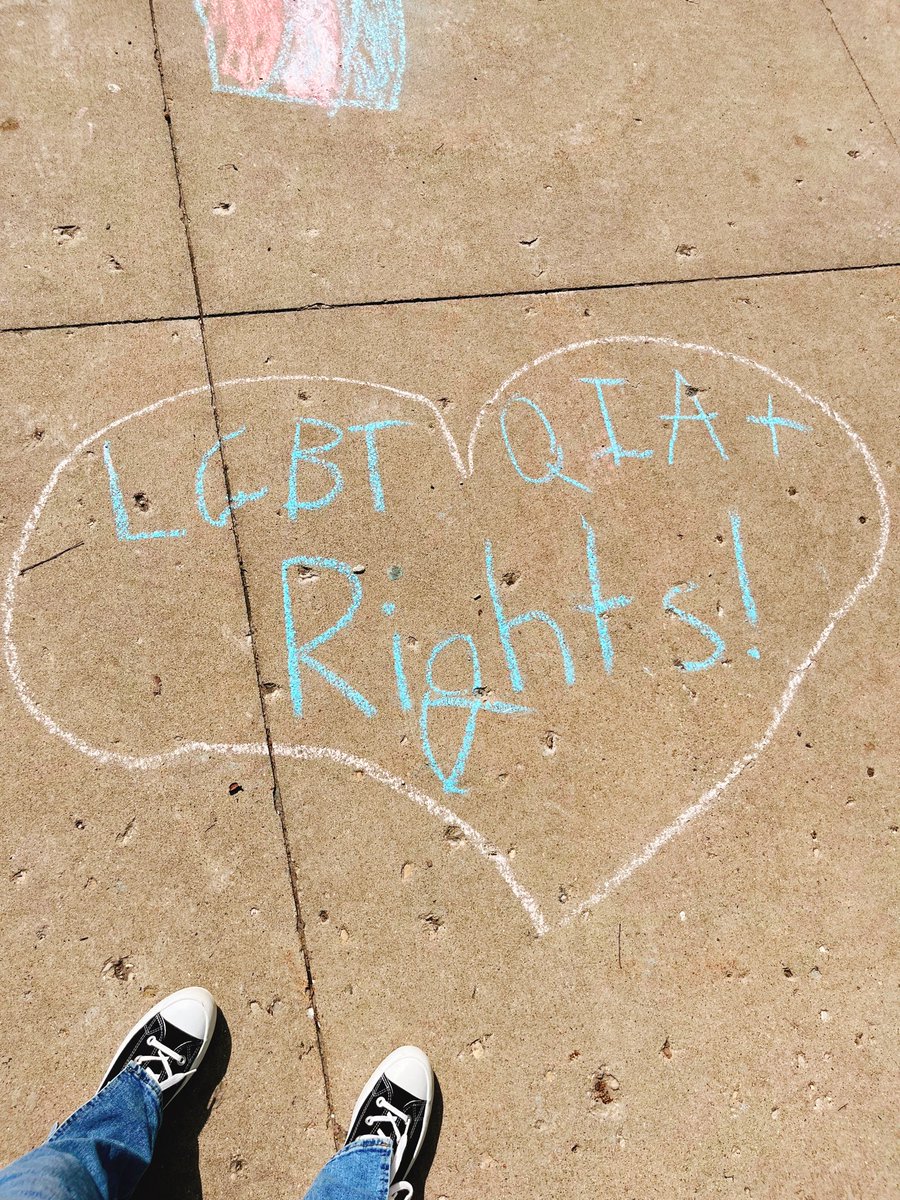 LGBT QIA+
Rights!